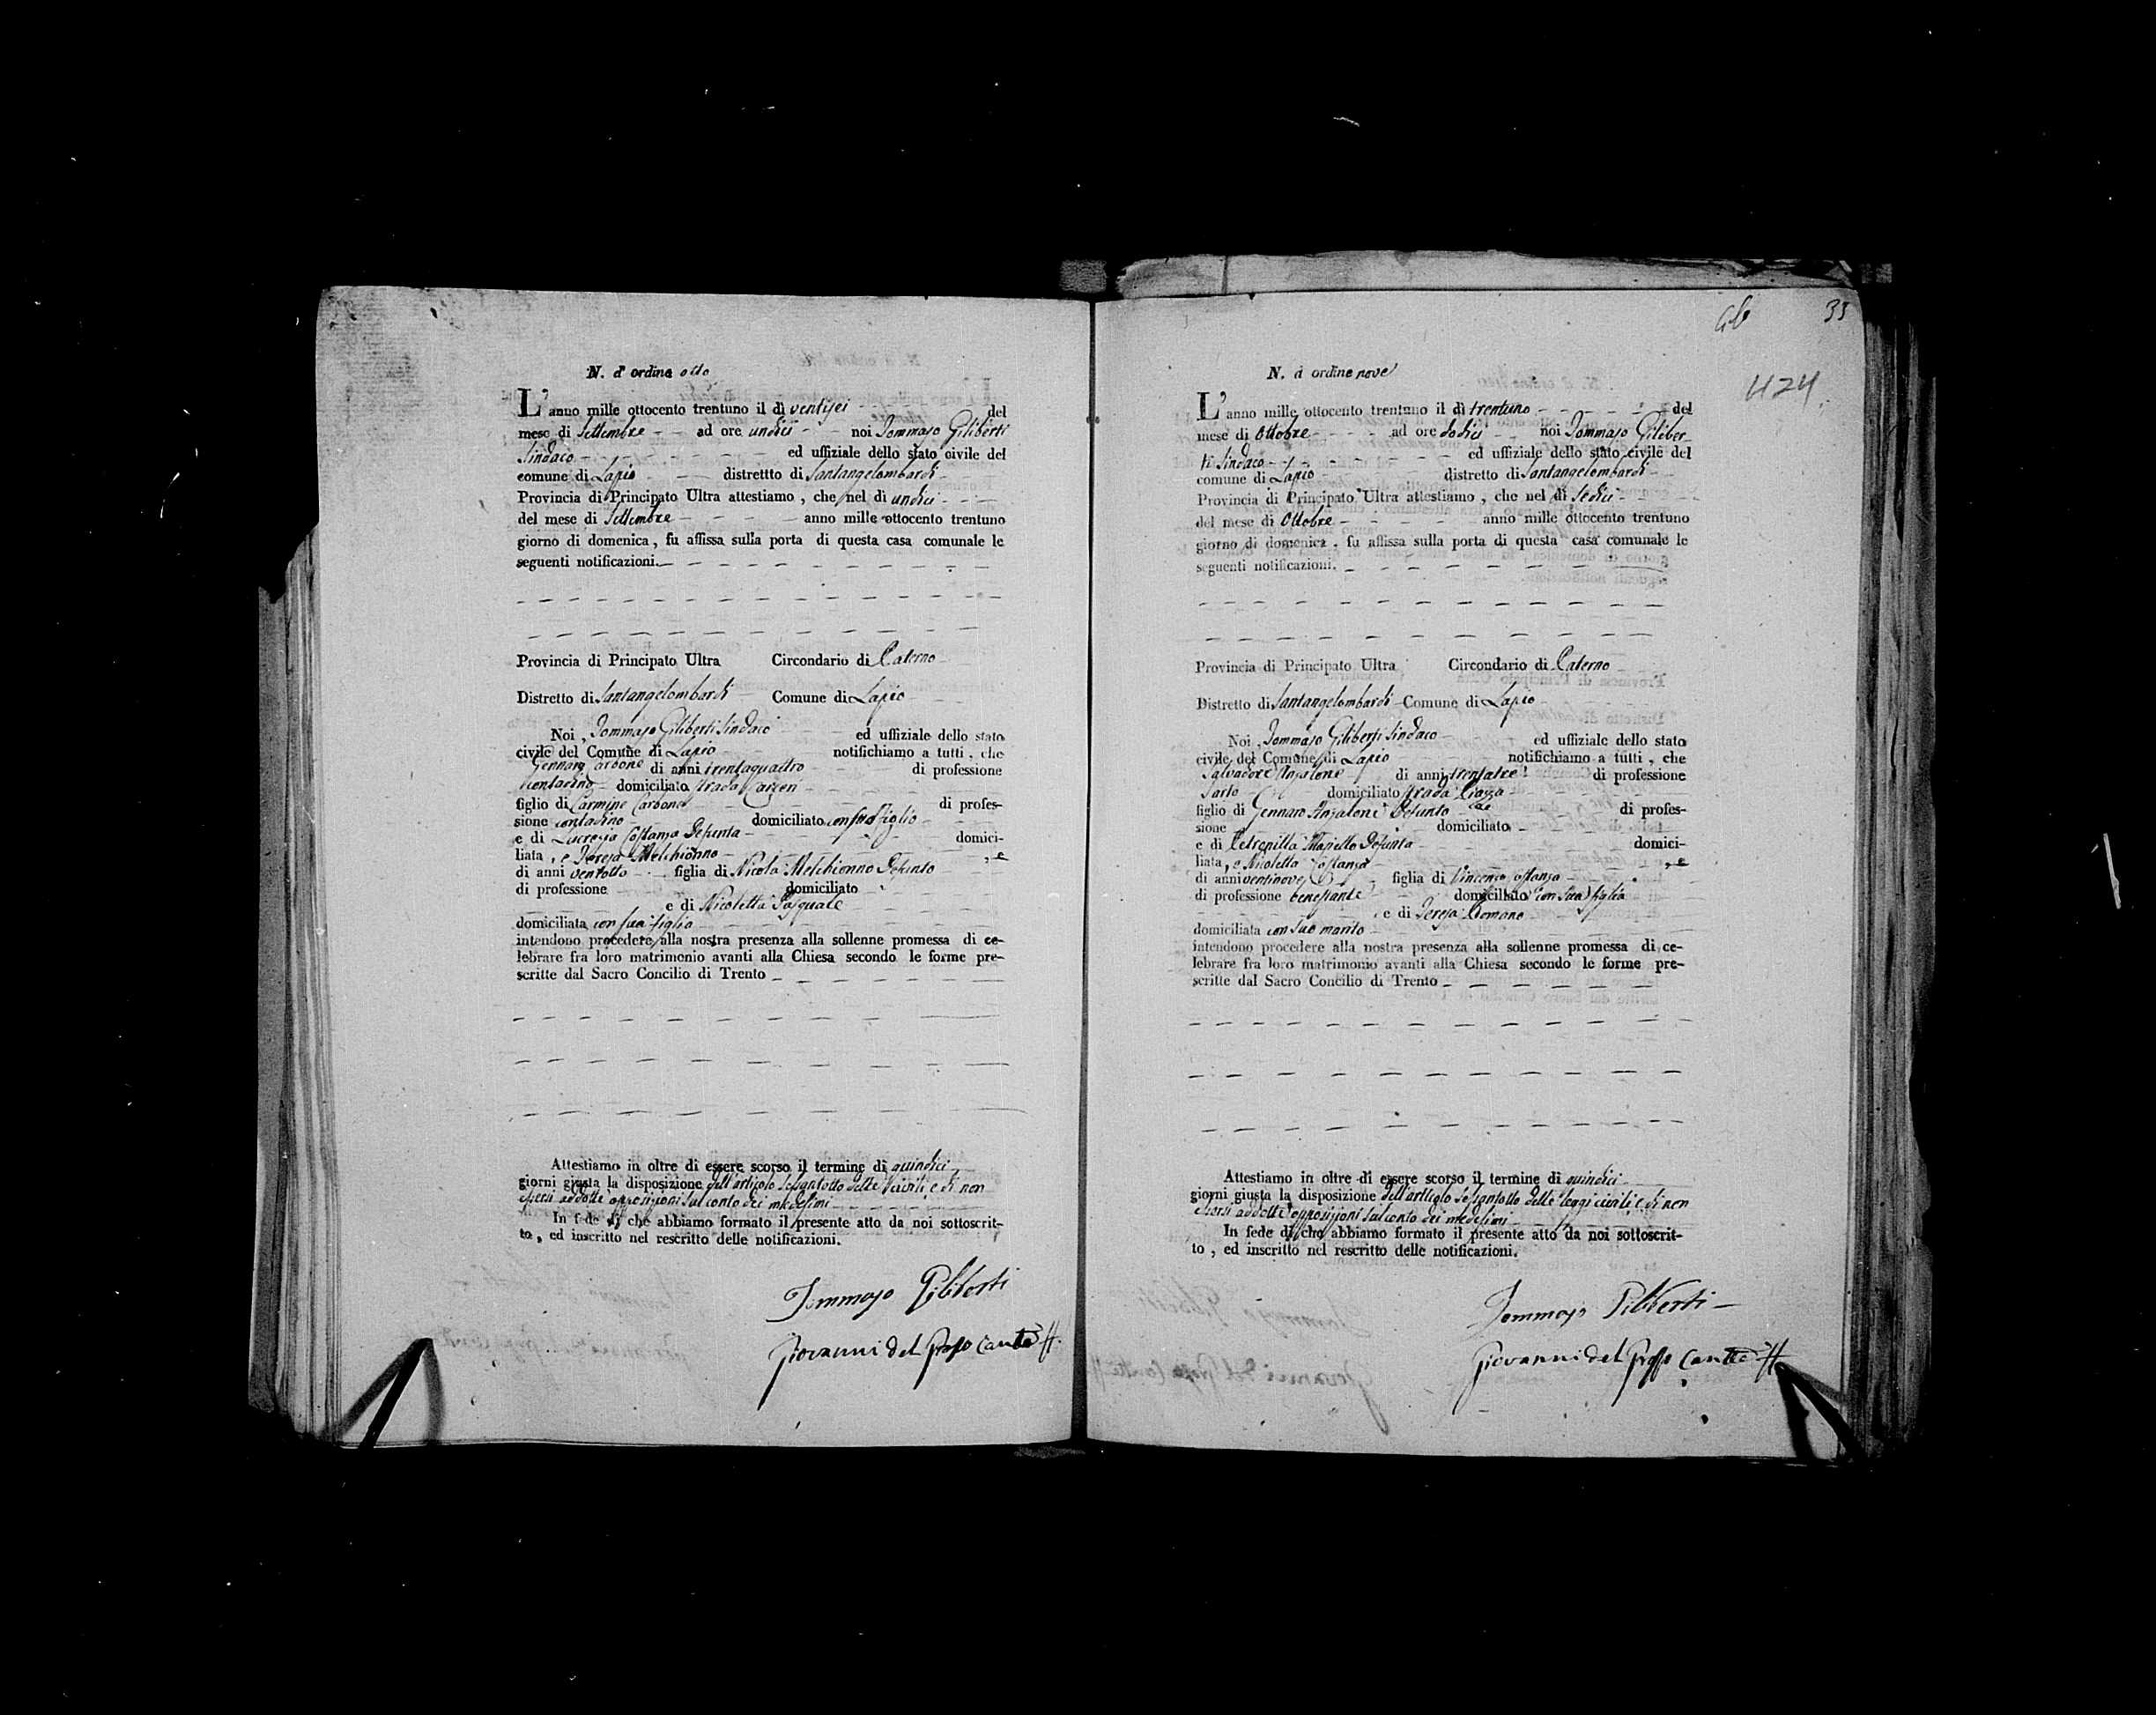 N. d'ordine otto
L'anno mille ottocento trentuno il dì ventisei del
mese di Settembre ad ore undici noi Tommaso Giliberti
Sindaco ed uffiziale dello stato civile del
comune di Lapio distrettto di Santangelombardi
Provincia di Principato Ultra attestiamo, che nel dì undici
del mese di Settembre anno mille ottocento trentuno
giorno di domenica, fu affissa sulla porta di questa casa comunale le
seguenti notificazioni.
Provincia di Principato Ultra Circondario di Paterno
Distretto di Santangelombardi Comune di Lapio
Noi, Tommaso Giliberti Sindaco ed uffiziale dello stato
civile del Comune di Lapio notifichiamo a tutti, che
Gennaro Carbone di anni trentaquattro di professione
contadino domiciliato strada Carceri
figlio di Carmine Carbone di profes-
sione contadino domiciliato con suo figlio
e di Lucrezia Costanza Defunta domici-
liata, e Teresa Melchionno , e
di anni ventotto figlia di Nicola Melchionno Defunto
di professione domiciliato
e di Nicoletta Pasquale
domiciliata con sua figlia
intendono procedere alla nostra presenza alla sollenne promessa di ce-
lebrare fra loro matrimonio avanti alla Chiesa secondo le forme pre-
scritte dal Sacro Concilio di Trento
Attestiamo in oltre di essere scorso il termine di quindici
giorni giusta la disposizione dell'articolo sessantotto delle civili e di non
essersi addotte opposizioni sul conto dei medesimi
In fede di che abbiamo formato il presente atto da noi sottoscrit-
to, ed inscritto nel rescritto delle notificazioni.
Tommaso Giliberti
Giovanni del Grosso
33
424
N. d'ordine nove
L'anno mille ottocento trentuno il dì trentuno del
mese di Ottobre ad ore dodici noi Tommaso Giliber
ti Sindaco ed uffiziale dello stato civile del
comune di Lapio distretto di Santangelombardi
Provincia di Principato Ultra attestiamo, che nel dì Sedici
del mese di Ottobre anno mille ottocento trentuno
giorno di domenica, fu affissa sulla porta di questa casa comunale le
seguenti notificazioni.
Provincia di Principato Ultra Circondario di Paterno
Distretto di Santangelombardi Comune di Lapio
Noi, Tommaso Giliberti Sindaco ed uffiziale dello stato
civile del Comune di Lapio notifichiamo a tutti, che
Salvadore Anzalone di anni trentatre di professione
Sarto domiciliato strada Piazza
figlio di Gennaro Anzalone Defunto di profes-
sione domiciliato
e di Petronilla Defunta domici-
liata, e Nicoletta Costanza , e
di anni ventinove figlia di Vincenzo Costanza
di professione benestante domiciliato con sua figlia
e di Teresa Romano
domiciliata con suo marito
intendono procedere alla nostra presenza alla sollenne promessa di ce-
lebrare fra loro matrimonio avanti alla Chiesa secondo le forme pre-
scritte dal Sacro Concilio di Trento
Attestiamo in oltre di essere scorso il termine di quindici
giorni giusta la disposizione dell'artticolo sessantotto delle leggi civili e di non
essersi addotte opposizioni sul conto dei medesimi
In fede di che abbiamo formato il presente atto da noi sottoscrit-
to, ed inscritto nel rescritto delle notificazioni.
Tommaso Giliberti
Giovanni del Grosso